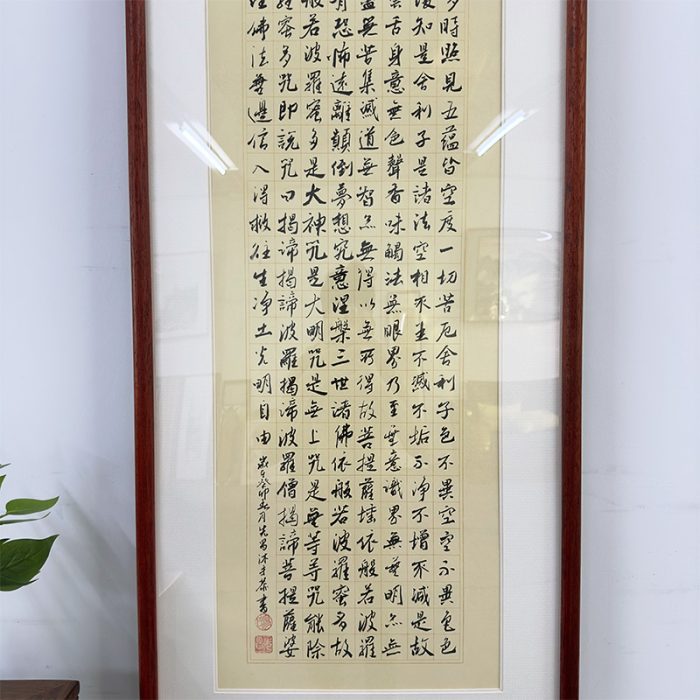 多時照見五蘊皆空度一切苦厄舍利子色不異空空不異色色
復如是舍利子是諸法空相不生不滅不垢不淨不增不減是故
舌身意無色聲香味觸法無眼界乃至無意識界無無明亦無
盡無苦集滅道無智亦無得以無所得故菩提薩埵依般若波羅
有恐怖遠離顛倒夢想究竟涅槃三世諸佛依般若波羅蜜多故
般若波羅蜜多是大神咒是大明咒是無上咒是無等等咒能除
羅蜜多咒即說咒曰揭諦揭諦波羅揭諦波羅僧揭諦菩提薩婆
佛法無邊信入得救往生净土光明自由
歲在癸卯秋月先昌沐手恭書